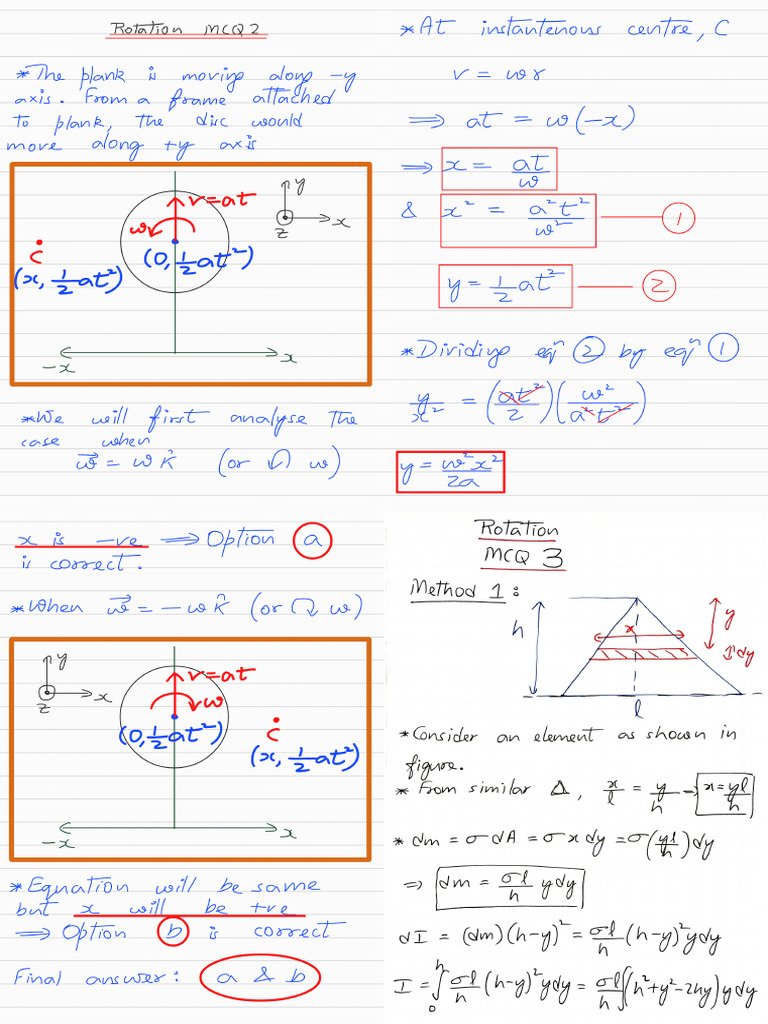 Rotation MCQ 2
* The plank is moving along -y
axis. From a frame attached
to plank, the disc would
move along +y axis
y
v = at
ω
x
z
C
(0, 1/2 at²)
(x, 1/2 at²)
-x
x
* We will first analyse the
case when
ω⃗ = ω k̂ (or ↺ ω)
* At instantenous centre, C
v = ωr
⇒ at = ω(-x)
⇒ x = at/ω
& x² = a²t²/ω² —— ①
y = 1/2 at² —— ②
* Dividing eqⁿ ② by eqⁿ ①
y/x² = (at²/2)(ω²/a²t²)
y = ω²x²/2a
x is -ve ⇒ Option a
is correct.
* When ω⃗ = -ω k̂ (or ↻ ω)
y
v = at
ω
x
z
(0, 1/2 at²)
C
(x, 1/2 at²)
-x
x
* Equation will be same
but x will be +ve
⇒ Option b is correct
Final answer: a & b
Rotation
MCQ 3
Method 1:
h
x
y
dy
l
* Consider an element as shown in
figure.
* From similar Δ, x/l = y/h → x = yl/h
* dm = σdA = σxdy = σ(yl/h)dy
⇒ dm = σl/h ydy
dI = (dm)(h-y)² = σl/h (h-y)²ydy
I = ∫₀ʰ σl/h (h-y)²ydy = σl/h ∫(h²+y²-2hy)ydy